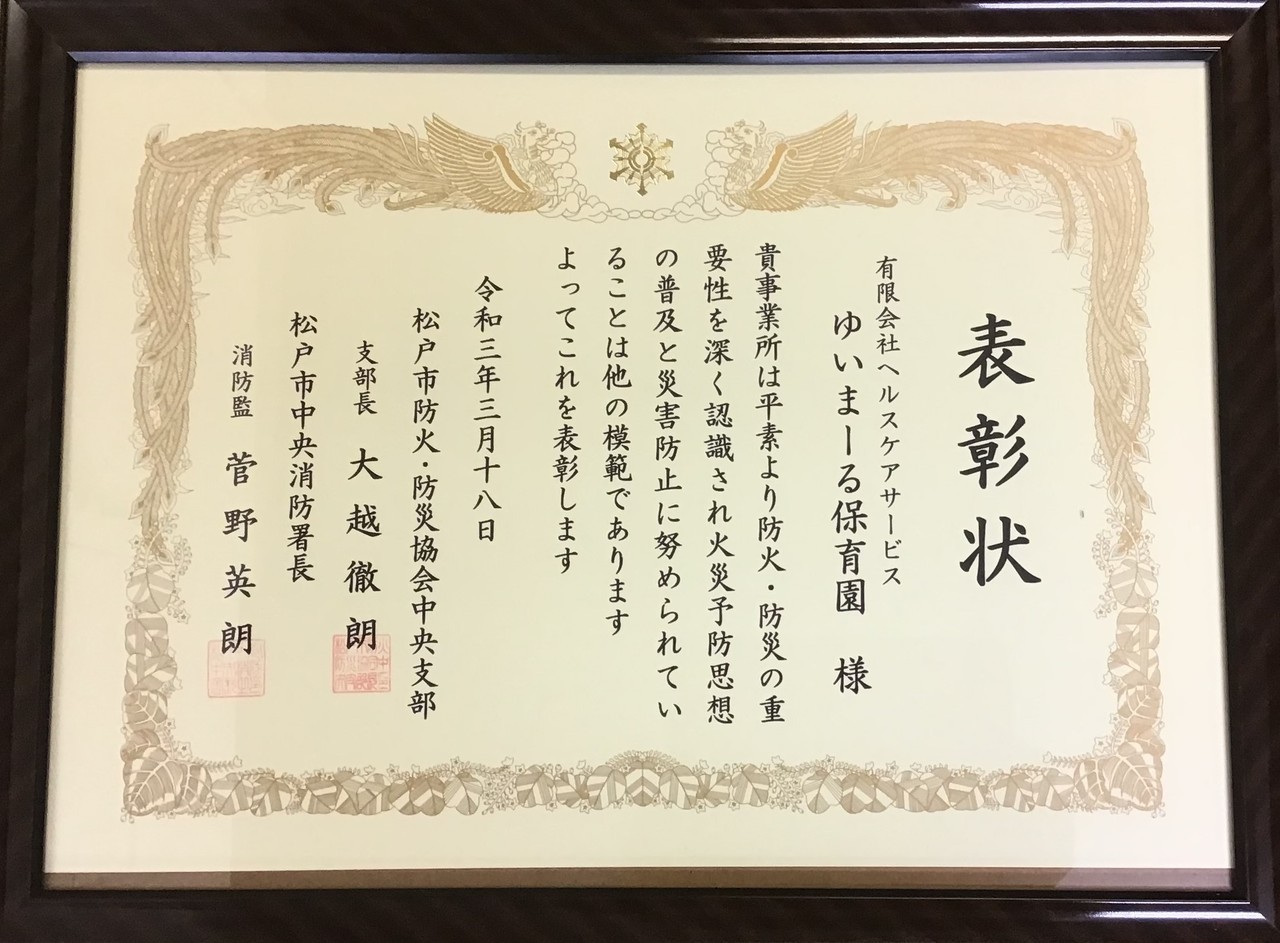 表彰状
有限会社ヘルスケアサービス
ゆいまーる保育園 様
貴事業所は平素より防火・防災の重
要性を深く認識され火災予防思想
の普及と災害防止に努められてい
ることは他の模範であります
よってこれを表彰します
令和三年三月十八日
松戸市防火・防災協会中央支部
支部長 大越徹朗
松戸市中央消防署長
消防監 菅野英朗